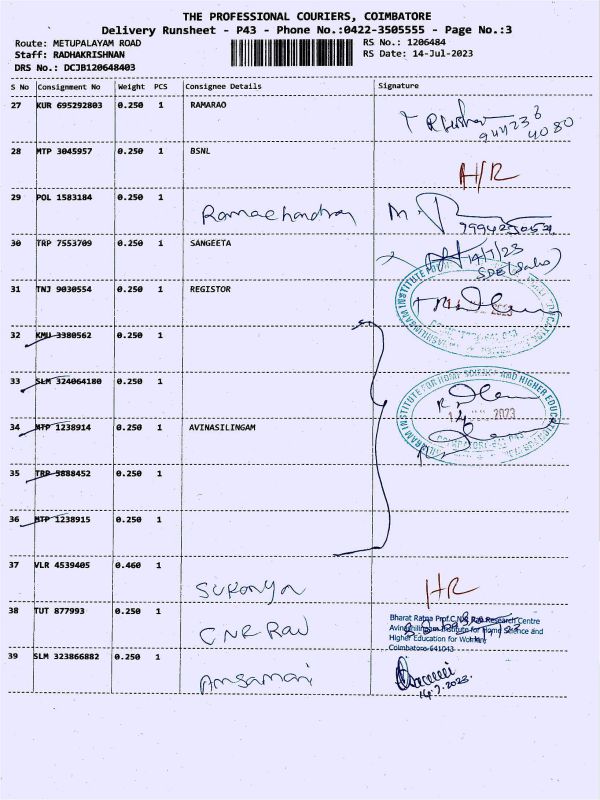 THE PROFESSIONAL COURIERS, COIMBATORE
Delivery Runsheet - P43 - Phone No.:0422-3505555 - Page No.:3
Route: METUPALAYAM ROAD RS No.: 1206484
Staff: RADHAKRISHNAN RS Date: 14-Jul-2023
DRS No.: DCJB120648403
S No Consignment No Weight PCS Consignee Details Signature
27 KUR 695292803 0.250 1 RAMARAO
944236
4080
28 MTP 3045957 0.250 1 BSNL
A/R
29 POL 1583184 0.250 1
Ramachandran M.
30 TRP 7553709 0.250 1 SANGEETA
14/7/23
31 TNJ 9030554 0.250 1 REGISTOR
32 KMU 3380562 0.250 1
33 SLM 324064180 0.250 1
INSTITUTE FOR HOME SCIENCE AND HIGHER EDUCATION
2023
34 MTP 1238914 0.250 1 AVINASILINGAM
35 TRP 5888452 0.250 1
36 MTP 1238915 0.250 1
37 VLR 4539405 0.460 1
Sukanya HR
38 TUT 877993 0.250 1
CNR Rao
Bharat Ratna Prof.C.N.R Rao Research Centre
Avinashilingam Institute for Home Science and
Higher Education for Women
Coimbatore-641043
39 SLM 323866882 0.250 1
Amsamani
14.7.2023.